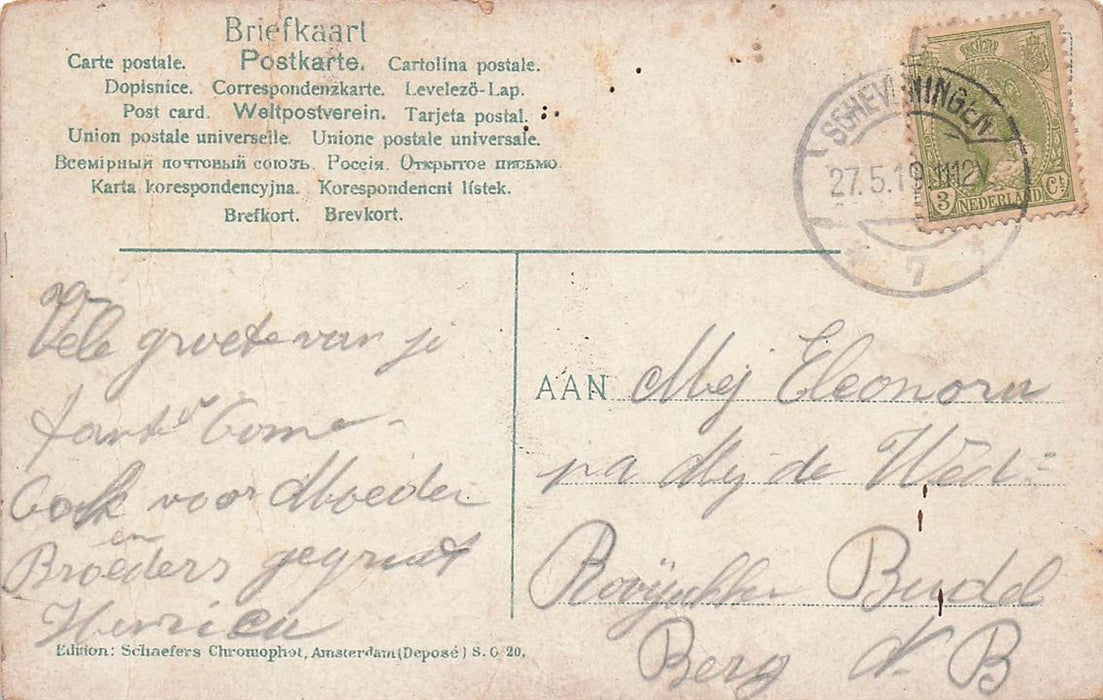 Briefkaart
Carte postale. Postkarte. Cartolina postale.
Dopisnice. Correspondenzkarte. Levelező-Lap.
Post card. Weltpostverein. Tarjeta postal.
Union postale universelle. Unione postale universale.
Всемірный почтовый союзъ. Россія. Открытое письмо.
Karta korespondencyjna. Korespondencni lístek.
Brefkort. Brevkort.
SCHEVENINGEN
27.5.1
7
3 NEDERLAND Ct
Vele groete van je
tante
Ook voor Moeder
en
Broeders gegroet
AAN Mej Eleonora
pa Mej de Wed:
Budel
Berg N B
Edition: Schaefers Chromophot, Amsterdam (Deposé) S. C 20.